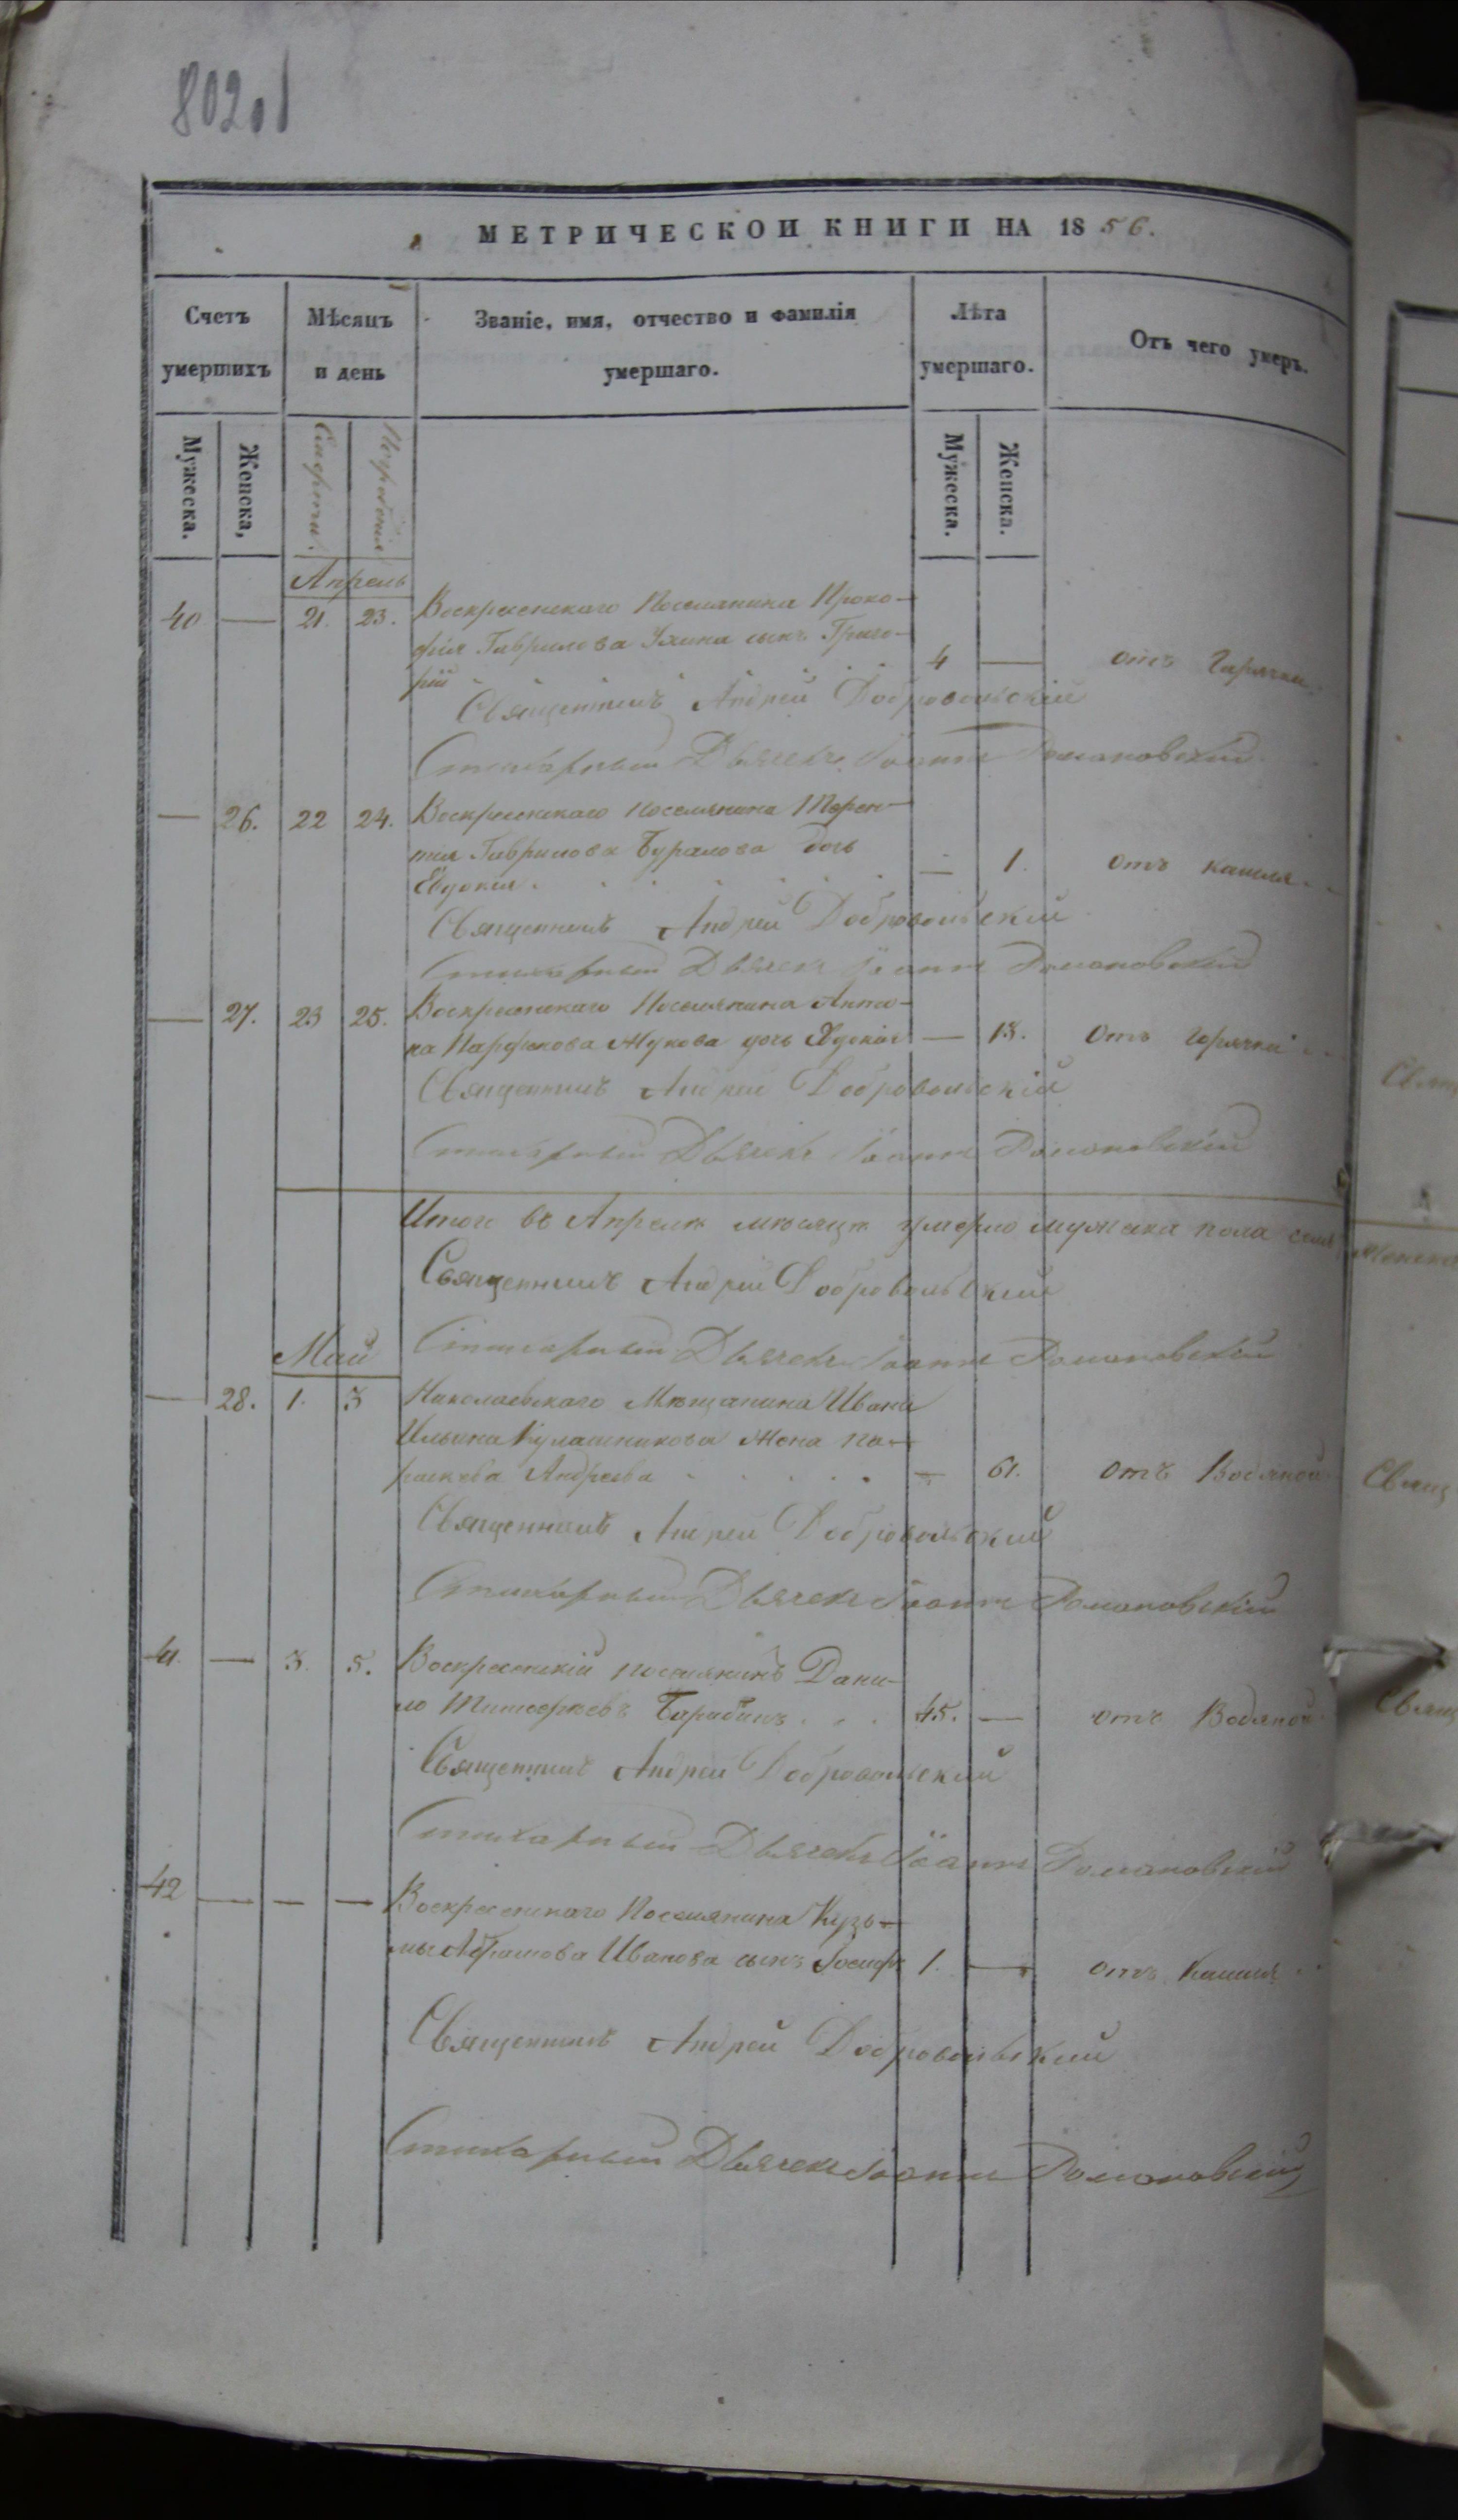 802об
МЕТРИЧЕСКОИ КНИГИ НА 1856.
Счетъ умершихъ
Мѣсяцъ и день
Званіе, имя, отчество и фамилія умершаго.
Лѣта умершаго.
Отъ чего умеръ.
Мужеска.
Женска,
Смерти.
Погребенія
Мужеска.
Женска.
Апрель
40 — 21. 23. Воскресенскаго Поселянина Проко-
фія Гаврилова сынъ Григо-
рій 4 — отъ Горячки
Священникъ Андрей Добровольскій
Стихарный Дьячекъ Іоаннъ Романовскій
— 26. 22 24. Воскресенскаго поселянина Терен-
тія Гаврилова Буралова дочь
Евдокія — 1. отъ кашля
Священникъ Андрей Добровольскій
Стихарный Дьячекъ Іоаннъ Романовскій
— 27. 23 25. Воскресенскаго Поселянина
Жукова дочь — 13. Отъ горячки
Священникъ Андрей Добровольскій
Стихарный Дьячекъ Іоаннъ Романовскій
Итого въ Апрелѣ мѣсяцѣ умерло мужеска пола
Священникъ Андрей Добровольскій
Стихарный Дьячекъ Іоаннъ Романовскій
Май
— 28. 1. 3 Николаевскаго Мѣщанина Ивана
Ильина Кулашникова Жена Па-
раскева Андреева — 61. отъ Водяной
Священникъ Андрей Добровольскій
Стихарный Дьячекъ Іоаннъ Романовскій
41. — 3. 5. Воскресенскій поселянинъ Дани-
ло Тимофѣевъ Барабашъ 45. — отъ Водяной
Священникъ Андрей Добровольскій
Стихарный Дьячекъ Іоаннъ Романовскій
42 — — — Воскресенскаго Поселянина Кузь-
мы Абрамова Иванова сынъ Іосифъ 1. — отъ Кашля
Священникъ Андрей Добровольскій
Стихарный Дьячекъ Іоаннъ Романовскій